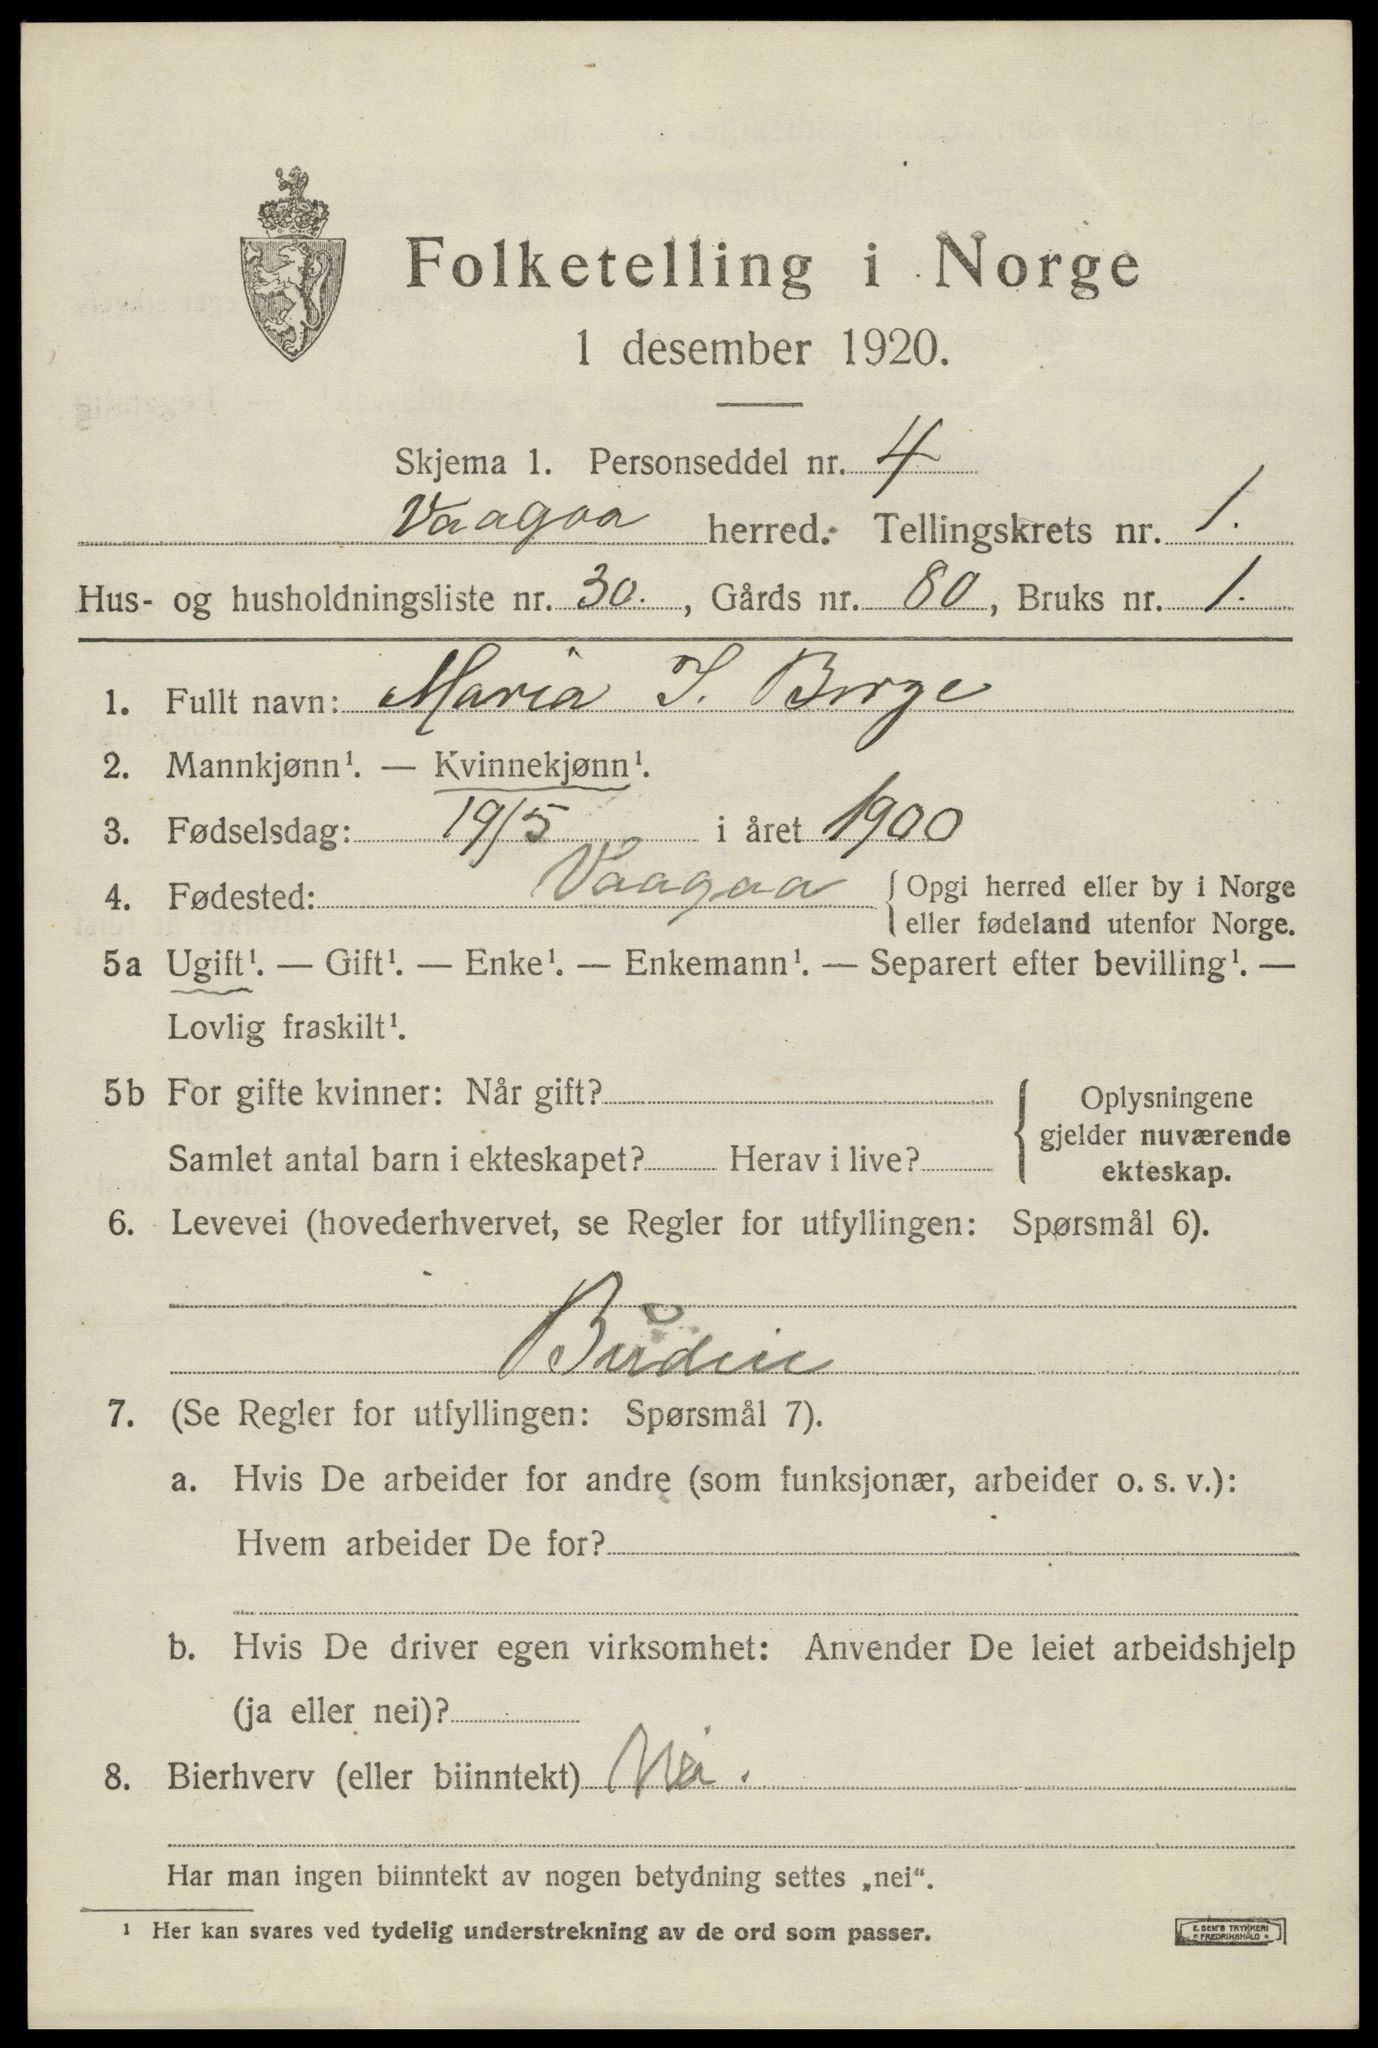 Folketelling i Norge
1 desember 1920.
Skjema 1. Personseddel nr. 4
Vaagaa herred. Tellingskrets nr. 1.
Hus- og husholdningsliste nr. 30., Gårds nr. 80, Bruks nr. 1.
1. Fullt navn: Maria I. Borge
2. Mannkjønn¹. — Kvinnekjønn¹.
3. Fødselsdag: 19/5 i året 1900
4. Fødested: Vaagaa { Opgi herred eller by i Norge
eller fødeland utenfor Norge.
5a Ugift¹. — Gift¹. — Enke¹. — Enkemann¹. — Separert efter bevilling¹. —
Lovlig fraskilt¹.
5b For gifte kvinner: Når gift?
Samlet antal barn i ekteskapet? Herav i live?
{ Oplysningene
gjelder nuværende
ekteskap.
6. Levevei (hovederhvervet, se Regler for utfyllingen: Spørsmål 6).
Budeie
7. (Se Regler for utfyllingen: Spørsmål 7).
a. Hvis De arbeider for andre (som funksjonær, arbeider o. s. v.):
Hvem arbeider De for?
b. Hvis De driver egen virksomhet: Anvender De leiet arbeidshjelp
(ja eller nei)?
8. Bierhverv (eller biinntekt) Nei.
Har man ingen biinntekt av nogen betydning settes „nei“.
¹ Her kan svares ved tydelig understrekning av de ord som passer.
E. SEM'S TRYKKERI
FREDRIKSHALD